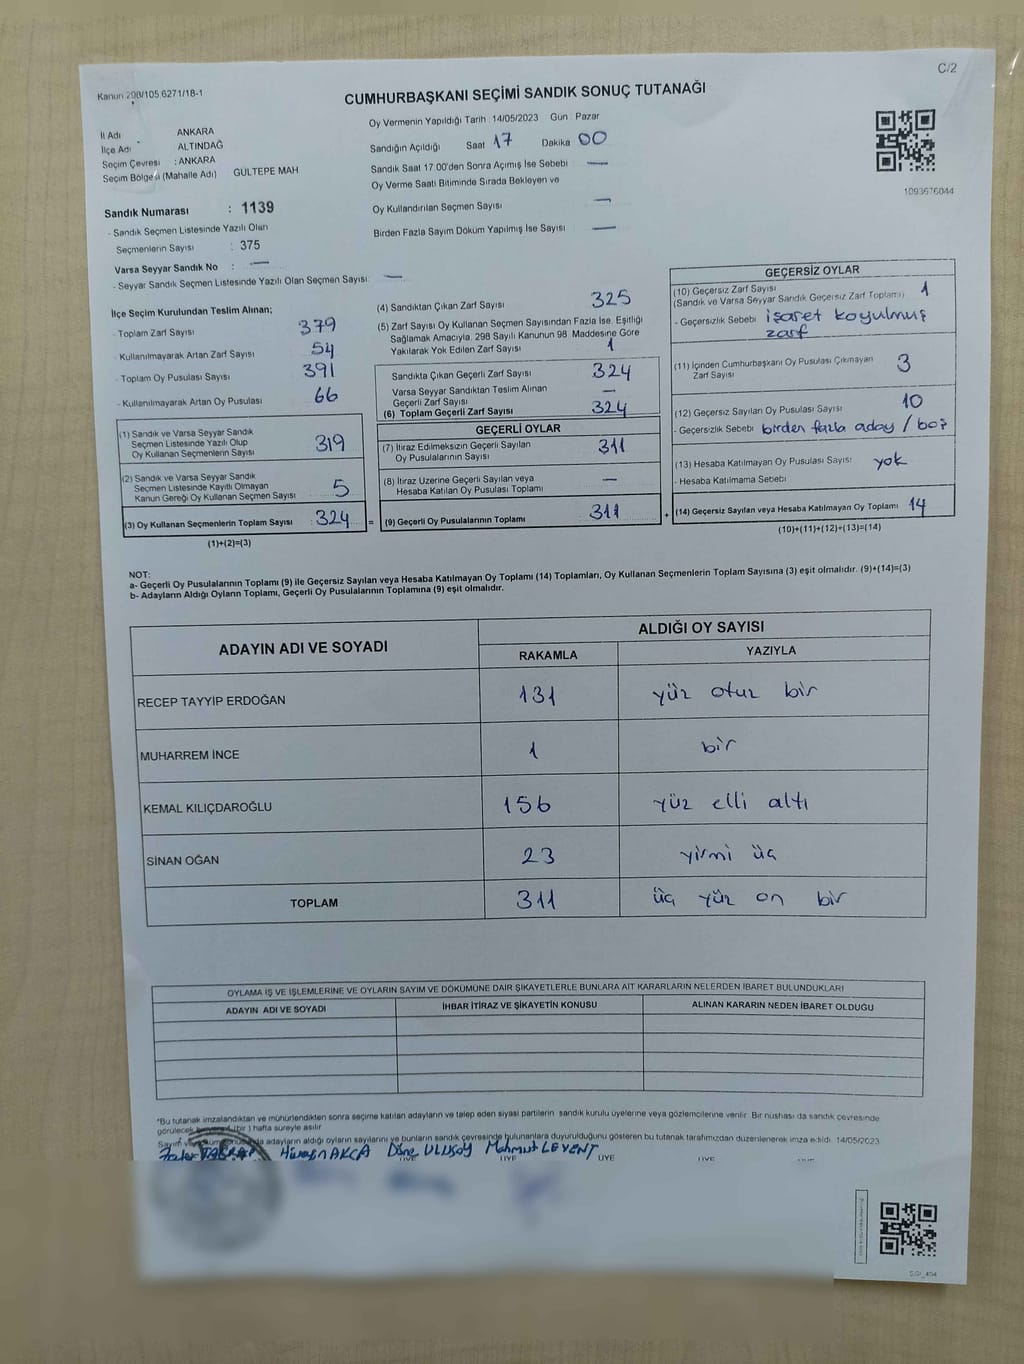 C/2
Kanun 298/105 6271/18-1
CUMHURBAŞKANI SEÇİMİ SANDIK SONUÇ TUTANAĞI
İl Adı ANKARA
İlçe Adı ALTINDAĞ
Seçim Çevresi : ANKARA
Seçim Bölgesi (Mahalle Adı) GÜLTEPE MAH
Sandık Numarası : 1139
- Sandık Seçmen Listesinde Yazılı Olan
Seçmenlerin Sayısı : 375
Varsa Seyyar Sandık No : —
- Seyyar Sandık Seçmen Listesinde Yazılı Olan Seçmen Sayısı: —
Oy Vermenin Yapıldığı Tarih 14/05/2023 Gün Pazar
Sandığın Açıldığı Saat 17 Dakika 00
Sandık Saat 17.00'den Sonra Açımış İse Sebebi —
Oy Verme Saati Bitiminde Sırada Bekleyen ve
Oy Kullandırılan Seçmen Sayısı —
Birden Fazla Sayım Döküm Yapılmış İse Sayısı —
1093676044
İlçe Seçim Kurulundan Teslim Alınan;
- Toplam Zarf Sayısı 379
- Kullanılmayarak Artan Zarf Sayısı 54
- Toplam Oy Pusulası Sayısı 391
- Kullanılmayarak Artan Oy Pusulası 66
(1) Sandık ve Varsa Seyyar Sandık
Seçmen Listesinde Yazılı Olup
Oy Kullanan Seçmenlerin Sayısı 319
(2) Sandık ve Varsa Seyyar Sandık
Seçmen Listesinde Kayıtlı Olmayan
Kanun Gereği Oy Kullanan Seçmen Sayısı 5
(3) Oy Kullanan Seçmenlerin Toplam Sayısı 324 =
(1)+(2)=(3)
(4) Sandıktan Çıkan Zarf Sayısı 325
(5) Zarf Sayısı Oy Kullanan Seçmen Sayısından Fazla İse, Eşitliği
Sağlamak Amacıyla, 298 Sayılı Kanunun 98. Maddesine Göre
Yakılarak Yok Edilen Zarf Sayısı 1
Sandıkta Çıkan Geçerli Zarf Sayısı 324
Varsa Seyyar Sandıktan Teslim Alınan
Geçerli Zarf Sayısı —
(6) Toplam Geçerli Zarf Sayısı 324
GEÇERLİ OYLAR
(7) İtiraz Edilmeksizin Geçerli Sayılan
Oy Pusulalarının Sayısı 311
(8) İtiraz Üzerine Geçerli Sayılan veya
Hesaba Katılan Oy Pusulası Toplamı —
(9) Geçerli Oy Pusulalarının Toplamı 311 +
GEÇERSİZ OYLAR
(10) Geçersiz Zarf Sayısı 1
(Sandık ve Varsa Seyyar Sandık Geçersiz Zarf Toplamı)
- Geçersizlik Sebebi işaret koyulmuş
zarf
(11) İçinden Cumhurbaşkanı Oy Pusulası Çıkmayan
Zarf Sayısı 3
(12) Geçersiz Sayılan Oy Pusulası Sayısı 10
- Geçersizlik Sebebi birden fazla aday / boş
(13) Hesaba Katılmayan Oy Pusulası Sayısı yok
- Hesaba Katılmama Sebebi
(14) Geçersiz Sayılan veya Hesaba Katılmayan Oy Toplamı 14
(10)+(11)+(12)+(13)=(14)
NOT:
a- Geçerli Oy Pusulalarının Toplamı (9) ile Geçersiz Sayılan veya Hesaba Katılmayan Oy Toplamı (14) Toplamları, Oy Kullanan Seçmenlerin Toplam Sayısına (3) eşit olmalıdır. (9)+(14)=(3)
b- Adayların Aldığı Oyların Toplamı, Geçerli Oy Pusulalarının Toplamına (9) eşit olmalıdır.
ADAYIN ADI VE SOYADI
ALDIĞI OY SAYISI
RAKAMLA YAZIYLA
RECEP TAYYİP ERDOĞAN 131 yüz otuz bir
MUHARREM İNCE 1 bir
KEMAL KILIÇDAROĞLU 156 yüz elli altı
SİNAN OĞAN 23 yirmi üç
TOPLAM 311 üç yüz on bir
OYLAMA İŞ VE İŞLEMLERİNE VE OYLARIN SAYIM VE DÖKÜMÜNE DAİR ŞİKAYETLERLE BUNLARA AİT KARARLARIN NELERDEN İBARET BULUNDUKLARI
ADAYIN ADI VE SOYADI İHBAR İTİRAZ VE ŞİKAYETİN KONUSU ALINAN KARARIN NEDEN İBARET OLDUĞU
*Bu tutanak imzalandıktan ve mühürlendikten sonra seçime katılan adayların ve talep eden siyasi partilerin sandık kurulu üyelerine veya gözlemcilerine verilir. Bir nüshası da sandık çevresinde
görülecek (bir) hafta süreyle asılır
Sayım ve adayların aldığı oyların sayılarını ve bunların sandık çevresinde bulunanlara duyurulduğunu gösteren bu tutanak tarafımızdan düzenlenerek imza edildi. 14/05/2023
Hüseyin AKÇA Döne ULUSOY Mahmut LEVENT
ÜYE ÜYE ÜYE ÜYE